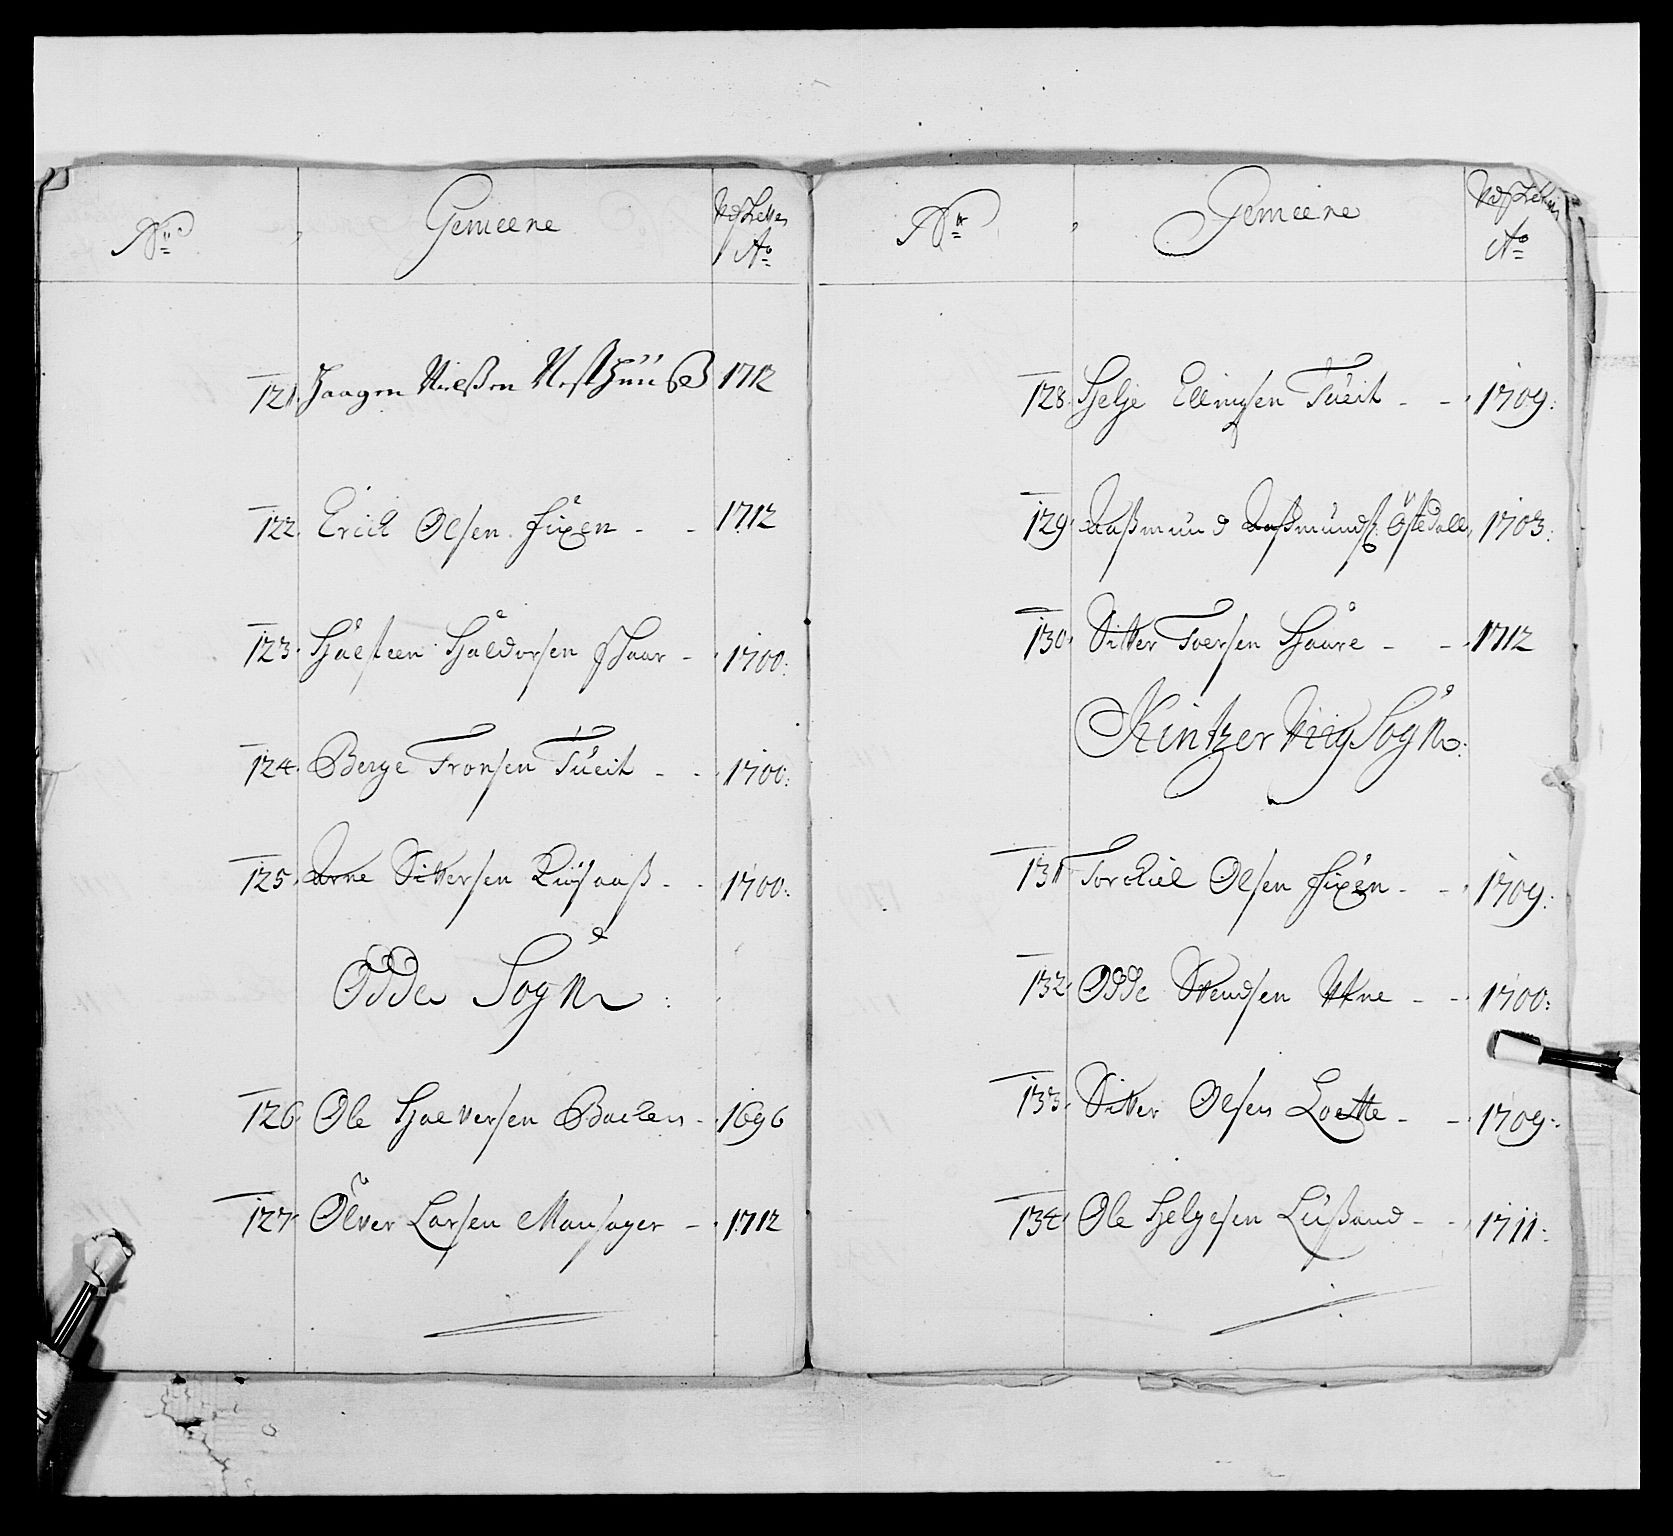 No Gemeene
Ao
121. Haagen Nielßen Vesthuuß 1712
122. Erick Olsen fixen - - 1712
123. Halsteen Haldorsen Haar - 1700:
124. Berge Tronsen Tueit - - 1700:
125. Arne Siversen - - 1700:
Odde Sogn:
126. Ole Halversen - 1696
127. Ølver Larsen Mansager - 1712
No Gemeene
Ao
128. Helje Ellingsen Tueit - - 1709:
129. Aaßmund Aaßmunds. 1703:
130. Siver Toersen Haare - - 1712
Kintzervig Sogn:
131 Torckiel Olsen fixen - - 1709:
132. Odde Svendsen Utne - - 1700:
133. Siver Olsen Loftte - - 1709:
134. Ole Helgesen Lußand - - 1711: